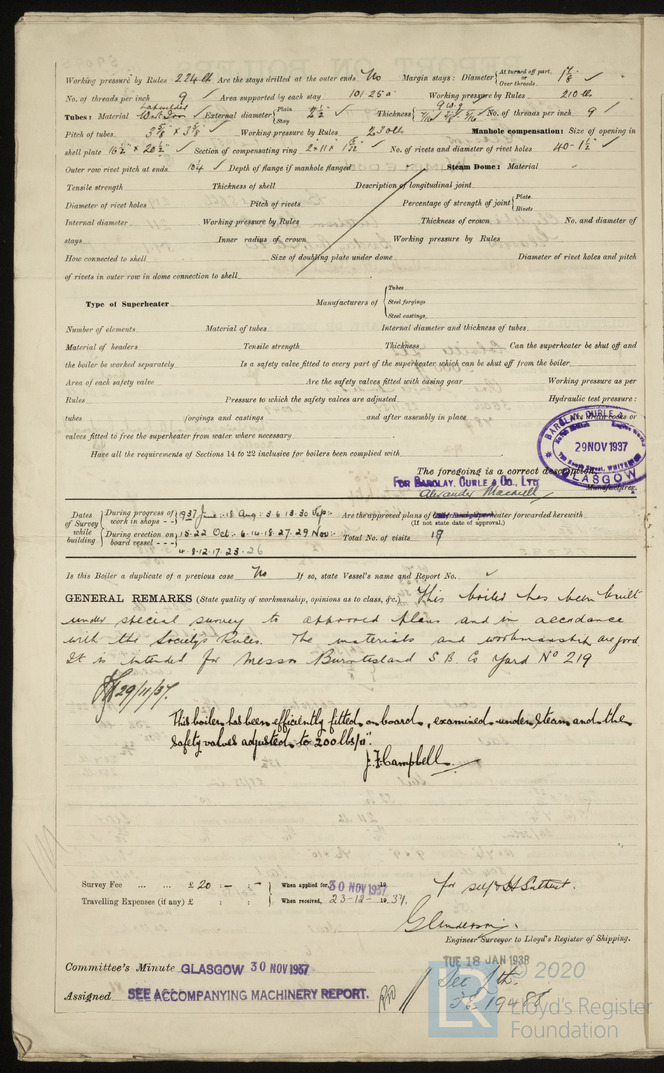 Working pressure by Rules 224 lb Are the stays drilled at the outer ends No Margin stays: Diameter { At turned off part, or Over threads 1 7/8 ✓
No. of threads per inch 9 ✓ Area supported by each stay 101.25 Working pressure by Rules 210 lb
Tubes: Material Lapwelded Wrt Iron ✓ External diameter { Plain Stay 2 1/2 ✓ Thickness { 9 W.G. No. of threads per inch 9 ✓
Pitch of tubes 3 5/8 × 3 5/8 ✓ Working pressure by Rules 230 lb Manhole compensation: Size of opening in
shell plate 16 1/2" × 20 1/2" ✓ Section of compensating ring No. of rivets and diameter of rivet holes 40 - 1 1/2 ✓
Outer row rivet pitch at ends 10 1/4 Depth of flange if manhole flanged Steam Dome: Material
Tensile strength Thickness of shell Description of longitudinal joint
Diameter of rivet holes Pitch of rivets Percentage of strength of joint { Plate Rivets
Internal diameter Working pressure by Rules Thickness of crown No. and diameter of
stays Inner radius of crown Working pressure by Rules
How connected to shell Size of doubling plate under dome Diameter of rivet holes and pitch
of rivets in outer row in dome connection to shell
Type of Superheater Manufacturers of { Tubes Steel forgings Steel castings
Number of elements Material of tubes Internal diameter and thickness of tubes
Material of headers Tensile strength Thickness Can the superheater be shut off and
the boiler be worked separately Is a safety valve fitted to every part of the superheater which can be shut off from the boiler
Area of each safety valve Are the safety valves fitted with easing gear Working pressure as per
Rules Pressure to which the safety valves are adjusted Hydraulic test pressure:
tubes forgings and castings and after assembly in place Are drain cocks or
valves fitted to free the superheater from water where necessary
BARCLAY, CURLE & 29 NOV 1937 GLASGOW
Have all the requirements of Sections 14 to 22 inclusive for boilers been complied with
The foregoing is a correct description,
FOR BARCLAY, CURLE & CO., LTD Manufacturer.
Alexander Macneill
Dates of Survey while building { During progress of work in shops - - 1937 June: 18 Aug: 3.6.13.30 Sep:- Are the approved plans of forwarded herewith
(If not state date of approval.)
During erection on board vessel - - - 15.22 Oct:- 6.14.18.27.29 Nov:- Total No. of visits 19
4.8.12.17.23.26
Is this Boiler a duplicate of a previous case No If so, state Vessel's name and Report No. ✓
GENERAL REMARKS (State quality of workmanship, opinions as to class, &c.) This boiler has been built
under special survey to approved plans and in accordance
with the Society's Rules. The materials and workmanship are good
It is intended for Messrs Burntisland S.B. Co Yard No 219
29/11/37.
This boiler has been efficiently fitted on board, examined under steam and the
safety valves adjusted to 200 lbs/□".
J. F. Campbell
Survey Fee ... ... £ 20 : - : - When applied for 30 NOV 1937 19 for self &
Travelling Expenses (if any) £ : : When received, 23-12- 19 37.
Engineer Surveyor to Lloyd's Register of Shipping.
Committee's Minute GLASGOW 30 NOV 1937 TUE 18 JAN 1938
Assigned SEE ACCOMPANYING MACHINERY REPORT. See Lth.
J.E. 19488
© 2020
Lloyd's Register
Foundation